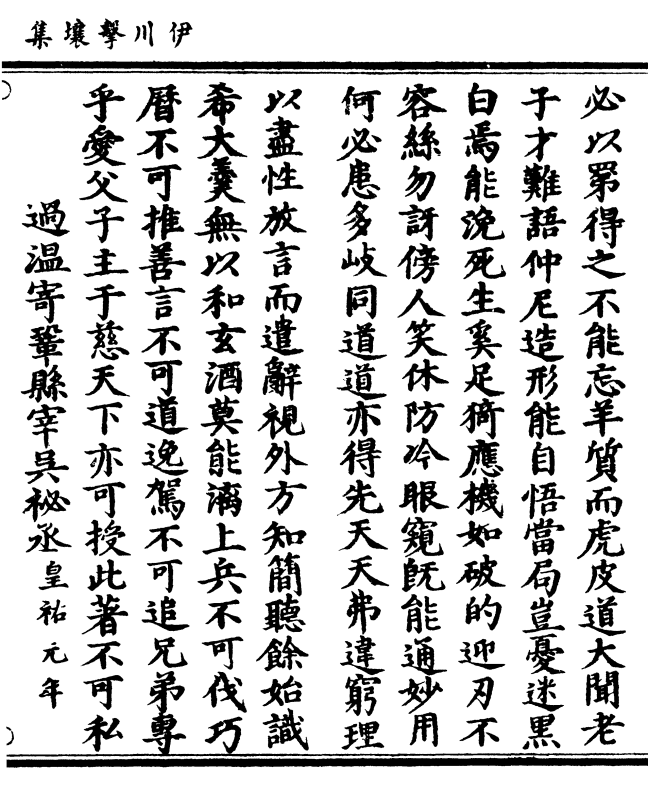 伊川擊壤集
必以第得之不能忘羊質而虎皮道大聞老
子才難語仲尼造形能自悟當局豈憂迷黑
白焉能浼死生奚足猗應機如破的迎刃不
容絲勿訝傍人笑休防冷眼窺旣能通妙用
何必患多岐同道道亦得先天天弗違窮理
以盡性放言而遣辭視外方知簡聽餘始識
希大羹無以和玄酒莫能漓上兵不可伐巧
曆不可推善言不可道逸駕不可追兄弟專
乎愛父子主于慈天下亦可授此著不可私
過温寄鞏縣宰吳祕丞皇祐元年